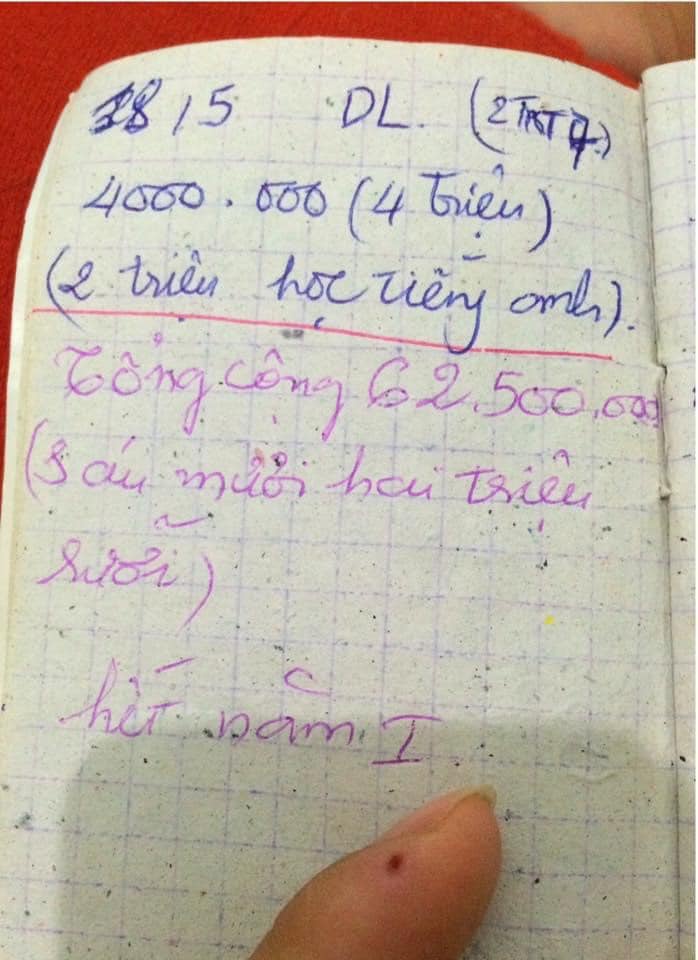 18/5 DL.
4000.000 (4 Triệu)
(2 triệu học tiếng anh).
Tổng cộng 62.500.000
(Sáu mười hai triệu
rưỡi)
hết năm I